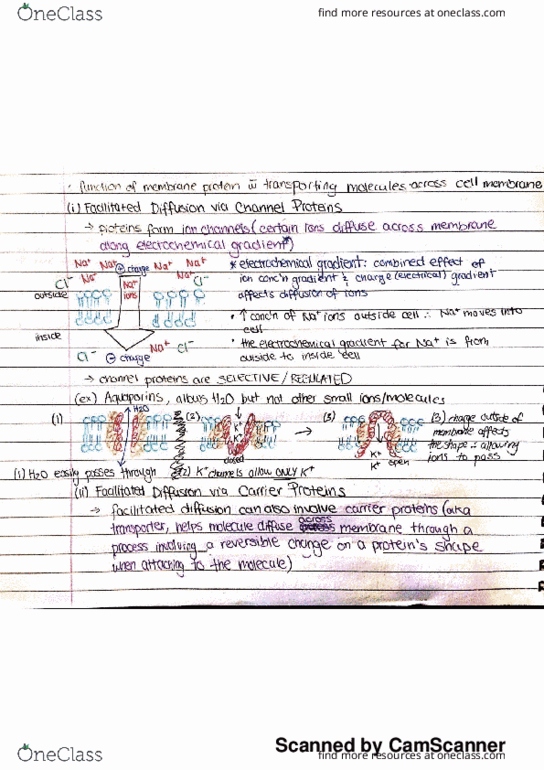 OneClass
find more resources at oneclass.com
· function of membrane protein w̅ transporting molecules across cell membrane
(i) Facilitated Diffusion via Channel Proteins
→ proteins form ion channels (certain ions diffuse across membrane
along electrochemical gradient*)
Na⁺ Na⁺ ⊕ charge Na⁺ Na⁺
Cl⁻ Na⁺ Na⁺ ions Na⁺ Cl⁻
outside
inside
Cl⁻ ⊖ charge Na⁺ Cl⁻
* electrochemical gradient: combined effect of
ion conc'n gradient & charge (electrical) gradient
affects diffusion of ions
· ↑ conc'n of Na⁺ ions outside cell ∴ Na⁺ moves into
cell
· the electrochemical gradient for Na⁺ is from
outside to inside cell
→ channel proteins are SELECTIVE / REGULATED
(ex) Aquaporins, allows H₂O but not other small ions/molecules
(1) H₂O (2) K⁺ K⁺ closed → (3) K⁺ K⁺ open
(3) charge outside of
membrane affects
the shape ∴ allowing
ions to pass
(1) H₂O easily passes through (2) K⁺ channels allow ONLY K⁺
(ii) Facilitated Diffusion via Carrier Proteins
→ facilitated diffusion can also involve carrier proteins (aka
transporter, helps molecule diffuse across membrane through a
process involving a reversible change on a protein's shape
when attaching to the molecule)
Scanned by CamScanner
OneClass
find more resources at oneclass.com